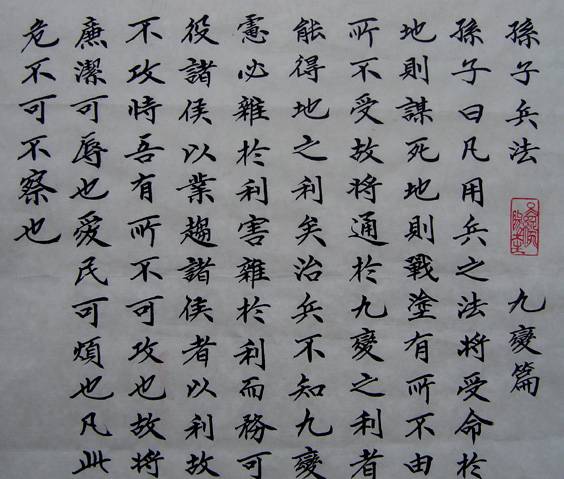 孫子兵法 九變篇
孫子曰凡用兵之法將受命於
地則謀死地則戰塗有所不由
所不受故將通於九變之利者
能得地之利矣治兵不知九變
慮必雜於利害雜於利而務可
役諸侯以業趨諸侯者以利故
不攻時吾有所不可攻也故將
廉潔可辱也愛民可煩也凡此
危不可不察也